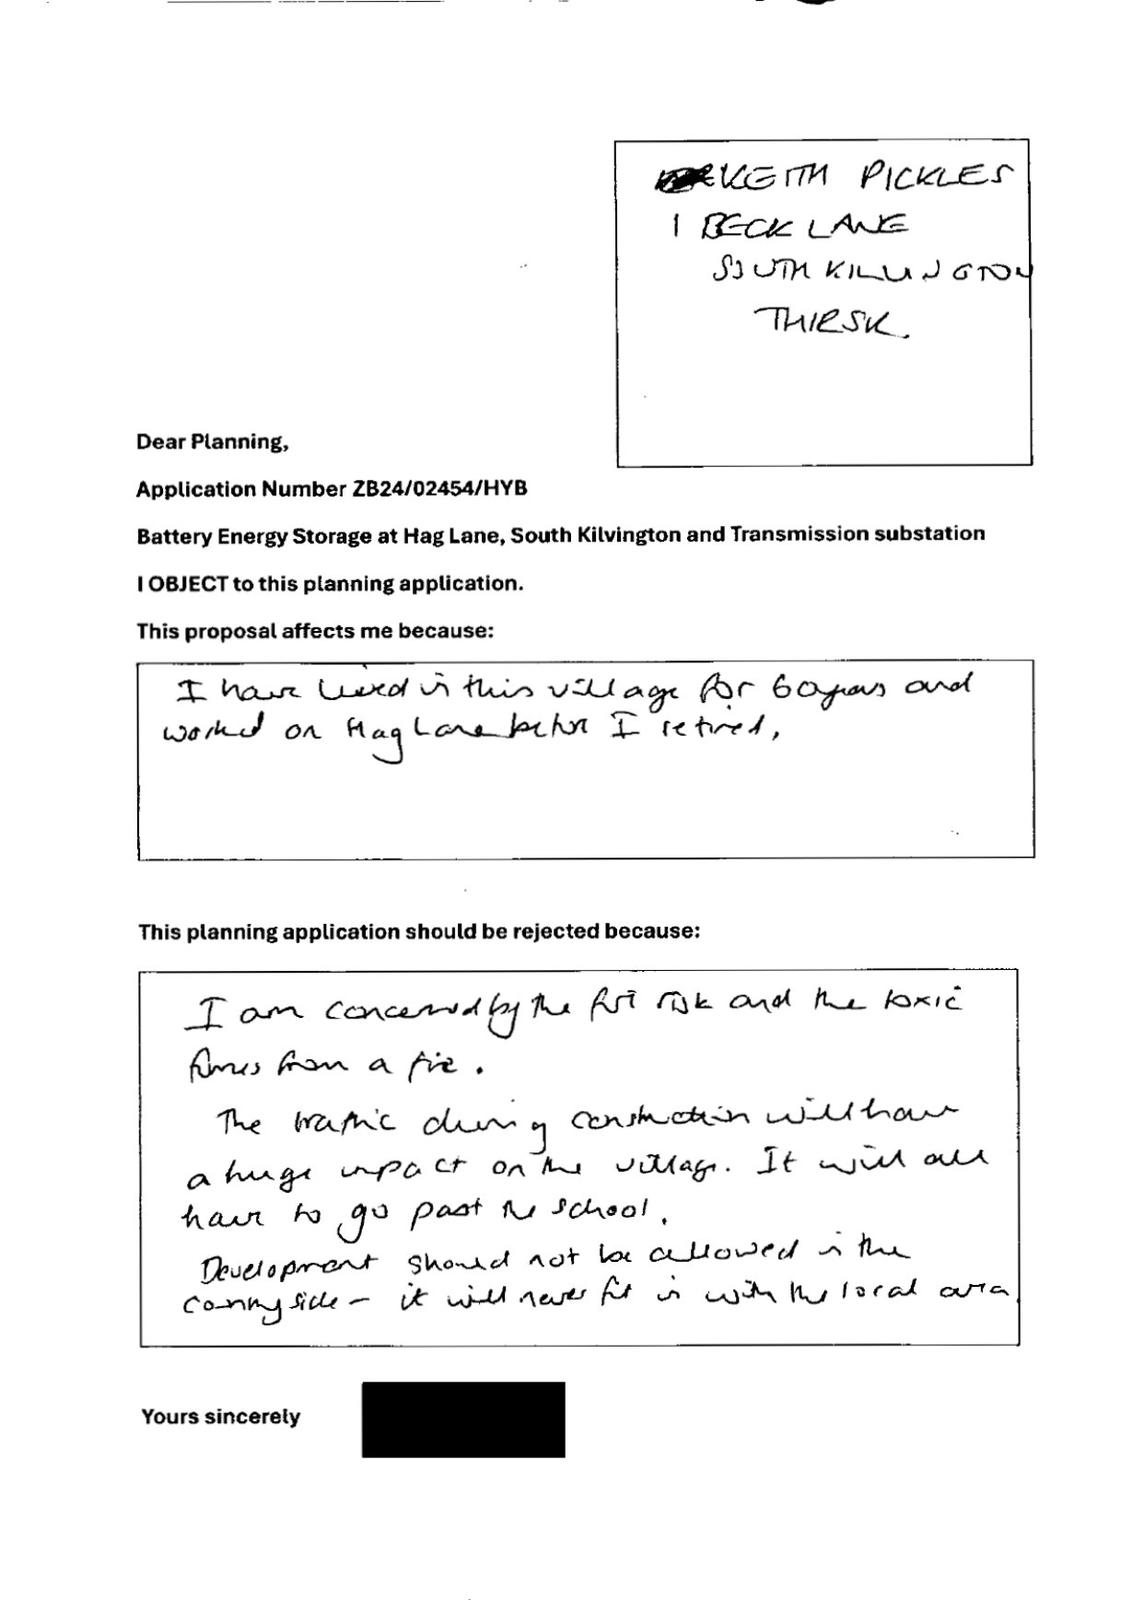 KEITH PICKLES
1 BECK LANE
SOUTH KILLINGTON
THIRSK.
Dear Planning,
Application Number ZB24/02454/HYB
Battery Energy Storage at Hag Lane, South Kilvington and Transmission substation
I OBJECT to this planning application.
This proposal affects me because:
I have lived in this village for 60 years and
worked on Hag Lane before I retired,
This planning application should be rejected because:
I am concerned by the fire risk and the toxic
fumes from a fire.
The traffic during construction will have
a huge impact on the village. It will all
have to go past the school.
Development should not be allowed in the
countryside - it will never fit in with the local area
Yours sincerely